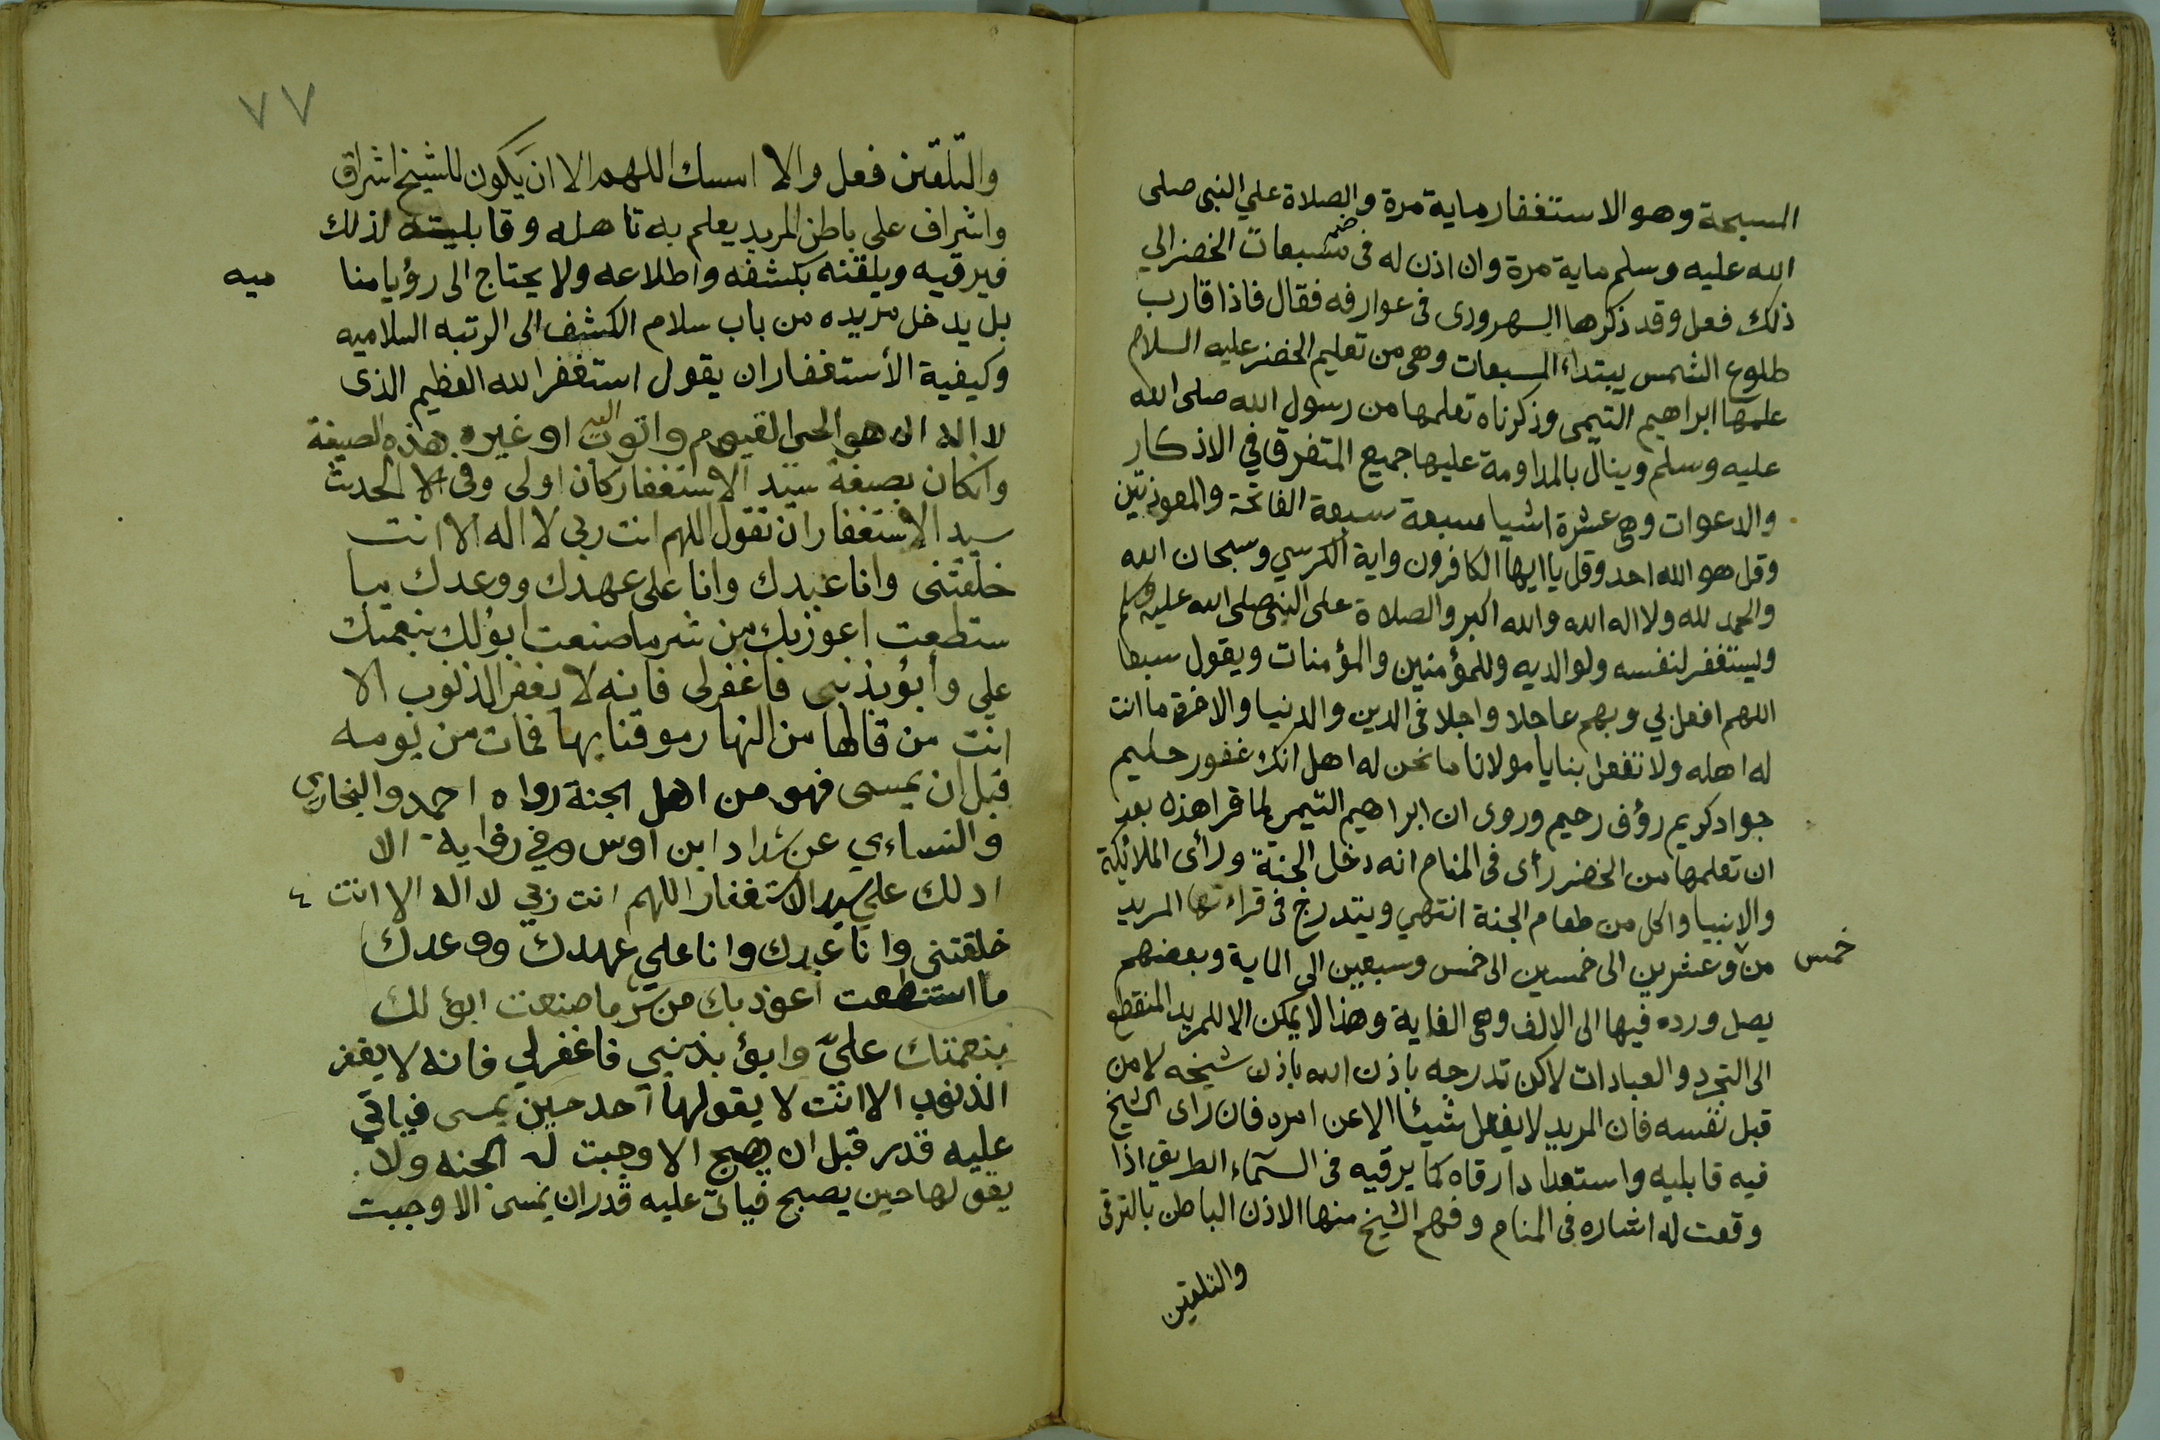 السبحة وهو الاستغفار ماية مرة والصلاة علي النبي صلى
الله عليه وسلم ماية مرة وان اذن له في ضم مسبعات الخضر الي
ذلك فعل وقد ذكرها السهروردى فى عوارفه فقال فاذا قارب
طلوع الشمس يبتداء المسبعات وهى من تعليم الخضر عليه السلام
علمها ابراهيم التيمى وذكر ناه تعلمها من رسول الله صلى الله
عليه وسلم وينال بالمداومة عليها جميع المتفرق في الاذكار
والدعوات وهى عشرة اشيا سبعة سبعة الفاتحة والمعوذتين
وقل هو الله احد وقل يا ايها الكافرون واية الكرسي وسبحان الله
والحمد لله ولا اله الله والله اكبر والصلاة على النبى صلى الله عليه وسلم
ويستغفر لنفسه ولوالديه وللمؤمنين والمؤمنات ويقول سبعا
اللهم افعل بي وبهم عاجلا واجلا فى الدين والدنيا والاخرة ما انت
له اهله ولا تفعل بنا يا مولانا ما نحن له اهل انك غفور حليم
جواد كريم رؤف رحيم وروى ان ابراهيم التيمى لما قرا هذه بعد
ان تعلمها من الخضر رأى فى المنام انه دخل الجنة ورأى الملائكة
والانبيا واكل من طعام الجنة انتهي ويتدرج فى قراءتها المريد
من خمس وعشرين الى خمسين الى خمس وسبعين الى الماية وبعضهم
يصل ورده فيها الى الالف وهى الغاية وهذا لا يمكن الا للمريد المنقطع
الى التجرد والعبادات لاكن تدرجه باذن الله باذن شيخه لا من
قبل نفسه فان المريد لا يفعل شيئا الا عن امره فان راى الشيخ
فيه قابليه واستعدادا رقاه كما يرقيه فى السماء الطريق اذا
وقعت له اشاره فى المنام وفهم الشيخ منها الاذن الباطن بالترقى
والتلقين
٧٧
والتلقين فعل والا امسك اللهم الا ان يكون للشيخ اشراق
واشراف على باطن المريد يعلم به تاهله وقابليته لذلك
فيرقيه ويلقنه بكشفه واطلاعه ولا يحتاج الى رؤيا منا ميه
بل يدخل مريده من باب سلام الكشف الى الرتبه السلاميه
وكيفية الأستغفار ان يقول استغفر الله العظيم الذى
لا اله الا هو الحى القيوم واتوب اليه او غيره بهذه الصيغة
وانكان بصيغة سيد الاستغفار كان اولى وفى الحديث
سيد الاستغفار ان تقول اللهم انت ربى لا اله الا انت
خلقتنى وانا عبدك وانا على عهدك ووعدك ما
ستطعت اعوذ بك من شر ما صنعت ابؤ لك بنعمتك
علي وأبؤ بذنبى فاغفر لى فانه لا يغفر الذنوب الا
انت من قالها من النهار موقنا بها فمات من يومه
قبل ان يمسى فهو من اهل الجنة رواه احمد والبخاري
والنساءي عن شداد ابن اوس وفي رواية الا
ادلك علي سيد الاستغفار اللهم انت ربي لا اله الا انت
خلقتنى وانا عبدك وانا علي عهدك ووعدك
ما استطعت أعوذ بك من شر ما صنعت ابؤ لك
بنعمتك عليّ وابؤ بذنبي فاغفر لي فانه لا يغفر
الذنوب الا انت لا يقولها احد حين يمسى فياتي
عليه قدر قبل ان يصبح الا وجبت له الجنه ولا
يقولها حين يصبح فياتى عليه قدر ان يمسى الا وجبت